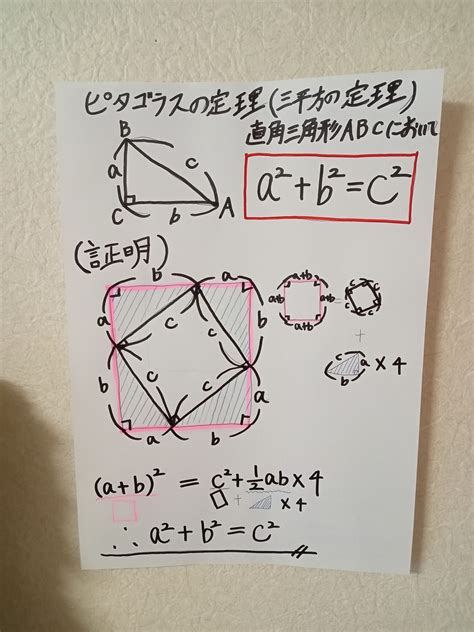 ピタゴラスの定理(三平方の定理)
直角三角形ABCにおいて
B
a
c
C
b
A
a²+b²=c²
(証明)
b
a
a
c
c
b
b
c
c
a
a
b
a+b
a+b
a+b
a+b
=
c
c
c
c
+
c
a
b
×4
(a+b)² = c²+½ab×4
+
×4
∴ a²+b²=c²